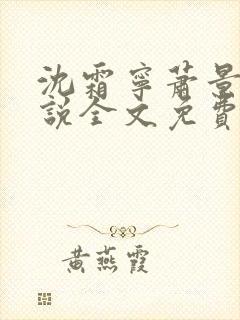 沈霜寧蕭景
說全文免費
黃燕霞